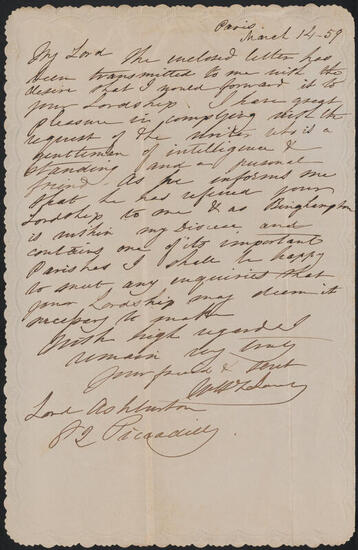 Paris
March 14 - 59
My Lord The enclosed letter has
been transmitted to me with the
desire that I would forward it to
your Lordship. I have great
pleasure in complying with the
request of the writer who is a
gentleman of intelligence &
standing and a personal
friend. As he informs me
that he has refered your
Lordship to me & as Binghampton
is within my Diocese, and
contains one of its important
Parishes I shall be happy
to meet any inquiries that
your Lordship may deem it
necessary to make
With high regards I
remain very truly
your friend & Servt
Lord Ashburton
82 Piccadilly